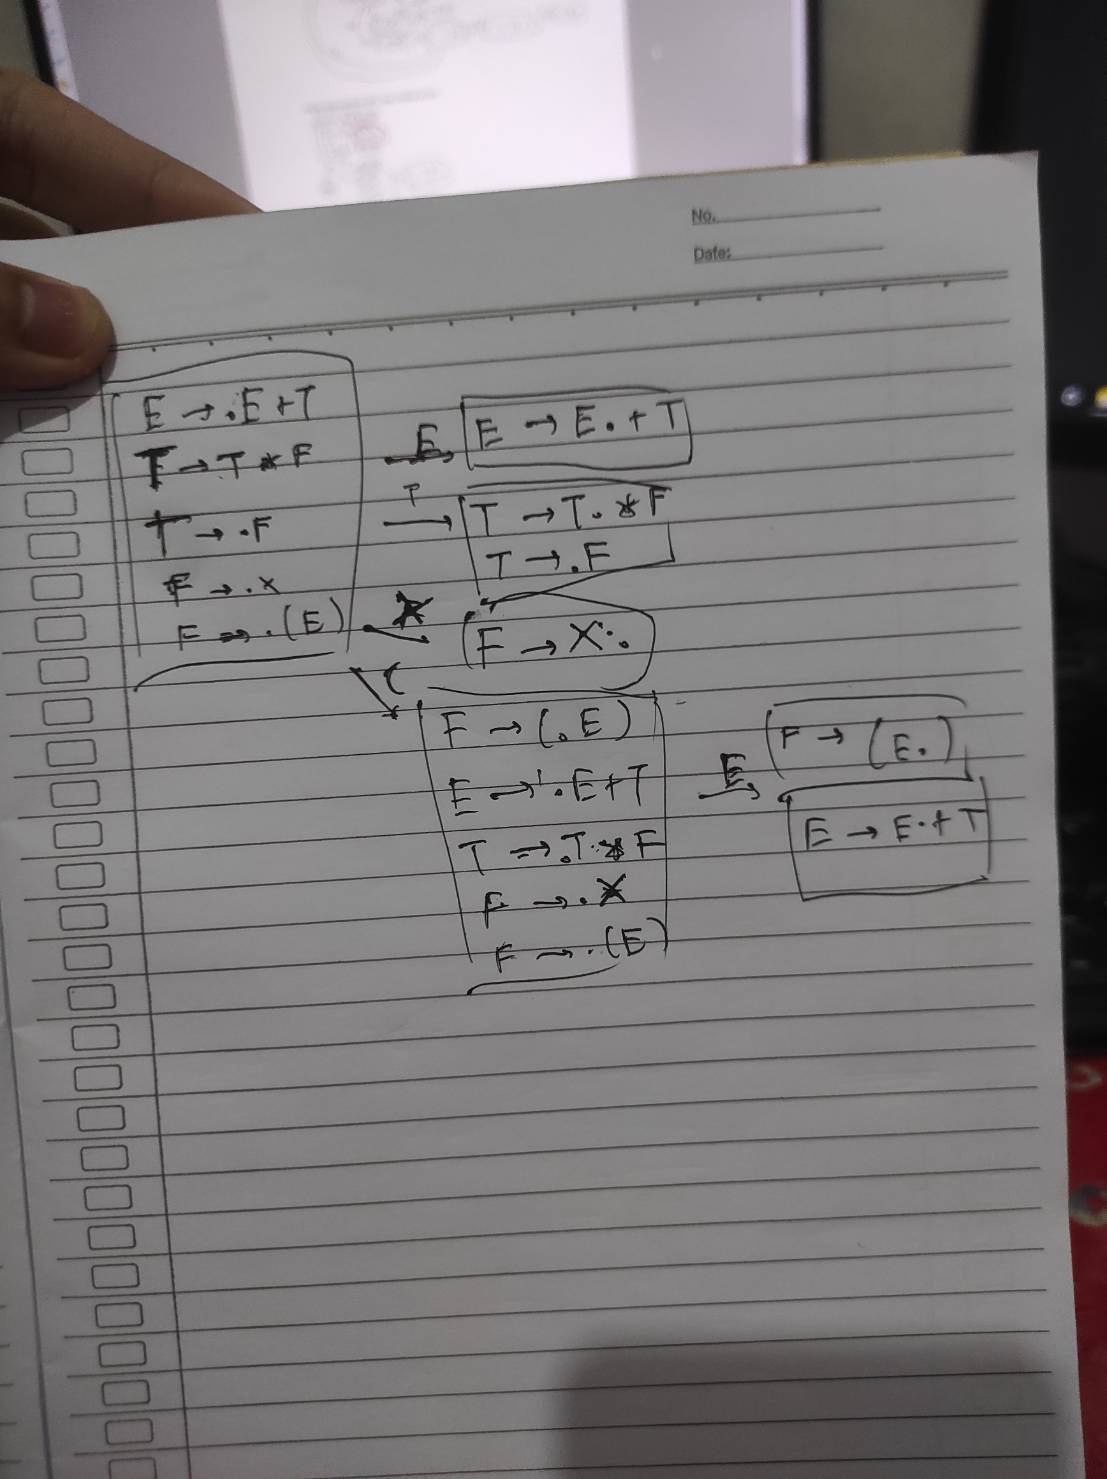 No.
Date:
E → .E+T
T → .T * F
T → .F
F → .x
F → .(E)
E
E → E. + T
T
T → T. * F
T → .F
x
F → X.
(
F → (.E)
E → .E+T
T → .T * F
F → .X
F → .(E)
E
F → (E.)
E → E.+T